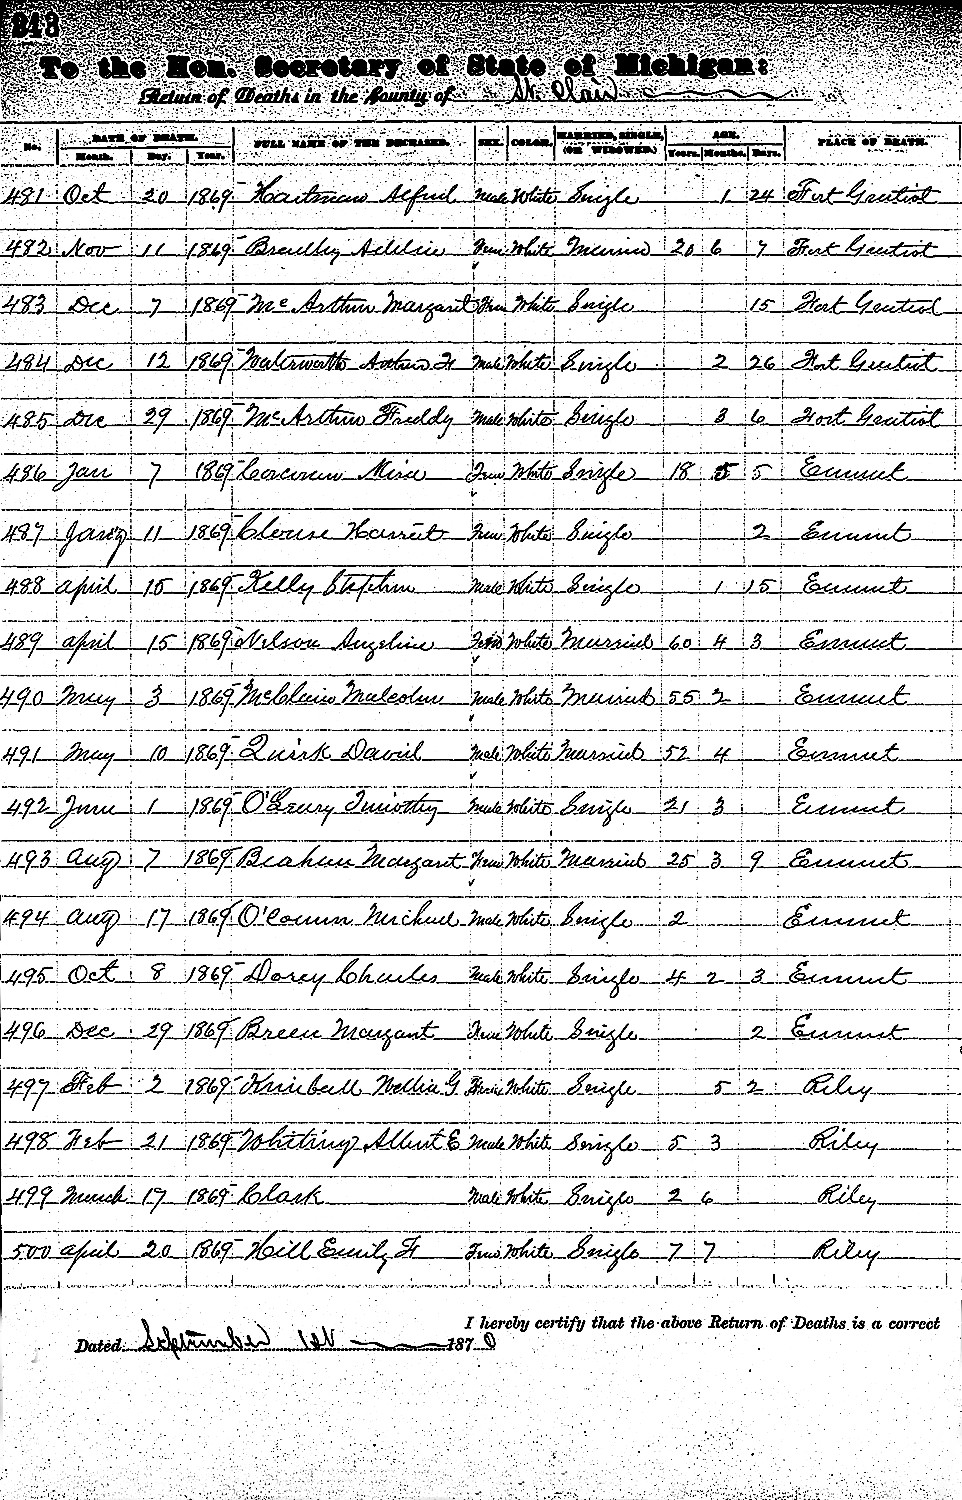 243
To the Hon. Secretary of State of Michigan:
Return of Deaths in the County of St. Clair
No. DATE OF DEATH. FULL NAME OF THE DECEASED. SEX. COLOR. MARRIED, SINGLE, (OR WIDOWED.) AGE. PLACE OF DEATH.
Month. Day. Year. Years. Months. Days.
481 Oct 20 1869 Hartman Alfred Male White Single 1 24 Fort Gratiot
482 Nov 11 1869 Bradley Addie Fem White Married 20 6 7 Fort Gratiot
483 Dec 7 1869 McArthur Margaret Fem White Single 15 Fort Gratiot
484 Dec 12 1869 Waterworth Andrew F Male White Single 2 26 Fort Gratiot
485 Dec 29 1869 McArthur Freddy Male White Single 3 6 Fort Gratiot
486 Jan 7 1869 Corcoran Fem White Single 18 5 5 Emmet
487 11 1869 Clouse Harriet Fem White Single 2 Emmet
488 april 15 1869 Kelly Stephen Male White Single 1 15 Emmet
489 april 15 1869 Nelson Angeline Fem White Married 60 4 3 Emmet
490 May 3 1869 McClain Malcolm Male White Married 55 2 Emmet
491 May 10 1869 Quirk David Male White Married 52 4 Emmet
492 June 1 1869 O'Leary Timothy Male White Single 21 3 Emmet
493 Aug 7 1869 Beahan Margaret Fem White Married 25 3 9 Emmet
494 Aug 17 1869 O'Connor Michael Male White Single 2 Emmet
495 Oct 8 1869 Dorey Charles Male White Single 4 2 3 Emmet
496 Dec 29 1869 Breen Margaret Fem White Single 2 Emmet
497 Feb 2 1869 Kimball Nellie G Fem White Single 5 2 Riley
498 Feb 21 1869 Whiting Albert E Male White Single 5 3 Riley
499 March 17 1869 Clark Male White Single 2 6 Riley
500 april 20 1869 Hill Emily F Fem White Single 7 7 Riley
I hereby certify that the above Return of Deaths is a correct
Dated September 1st 1870